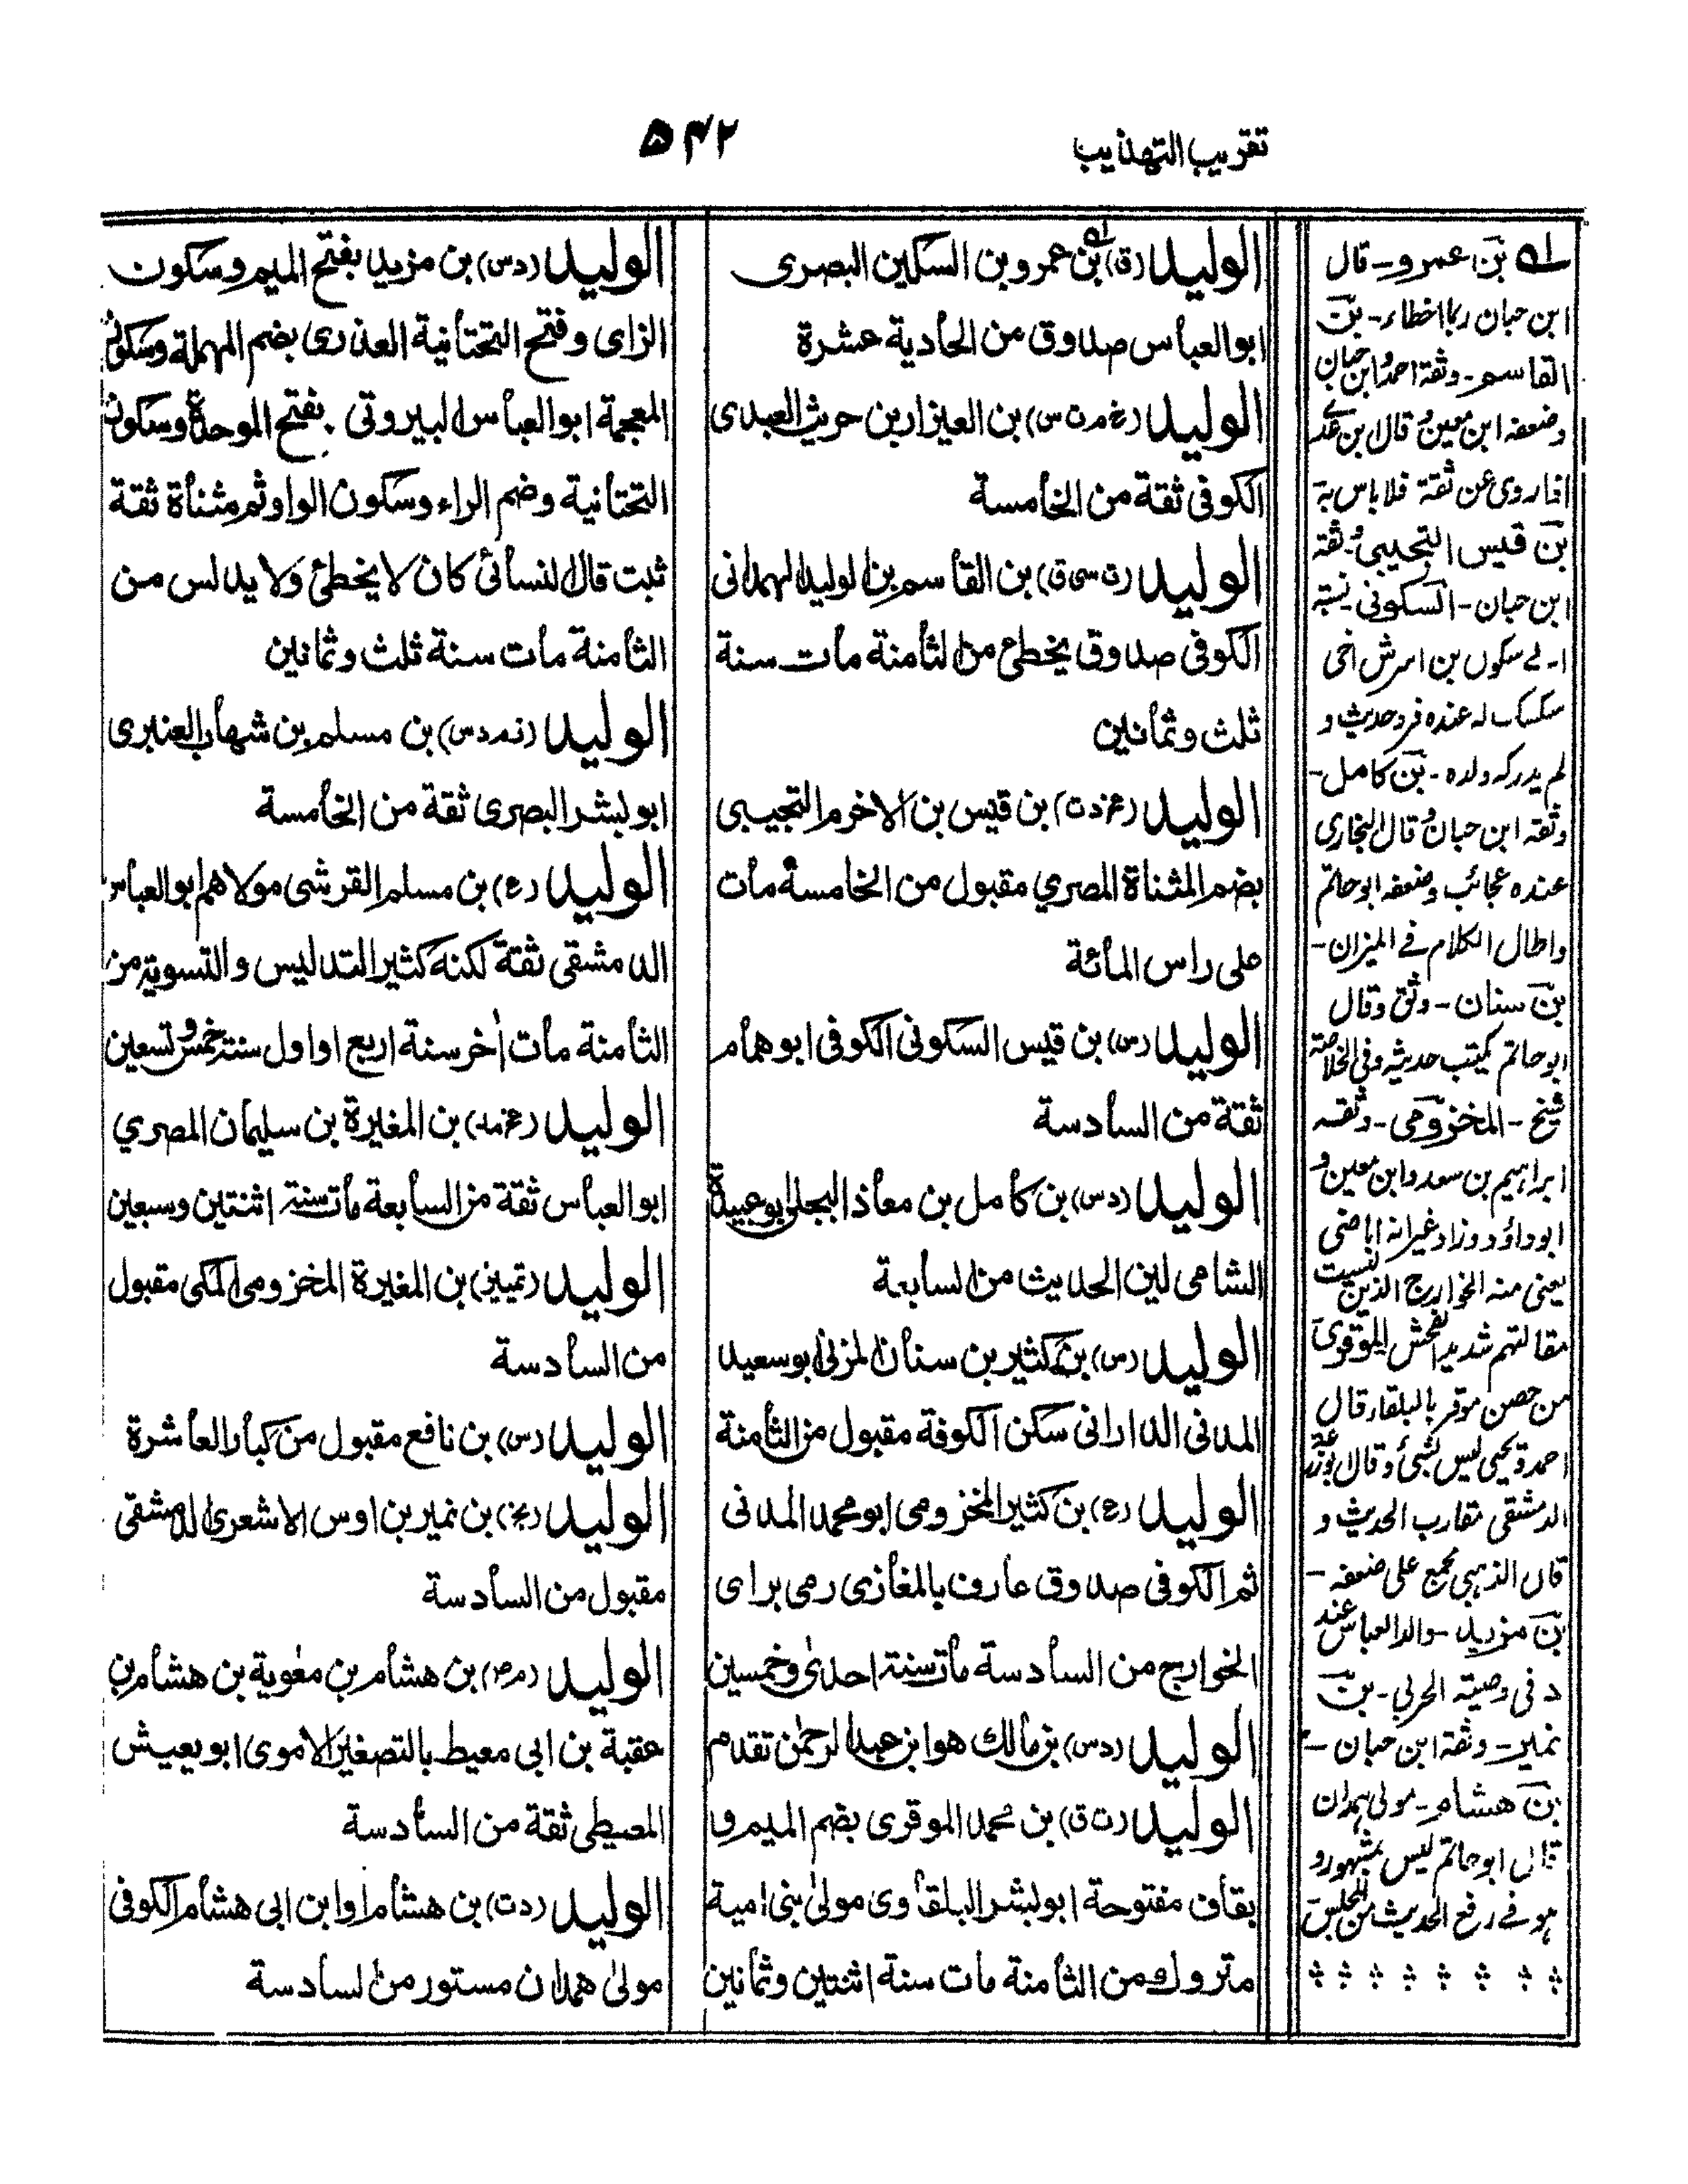 تقريب التهذيب
۵۴۲
الوليد (ق) بن عمرو بن السكين البصرى
ابو العباس صدوق من الحادية عشرة
الوليد (خ م ت س) بن العيزار بن حريث العبدى
الكوفى ثقة من الخامسة
الوليد (ت سى ق) بن القاسم بن الوليد الهمدانى
الكوفى صدوق يخطئ من الثامنة مات سنة
ثلث وثمانين
الوليد (عز د ت) بن قيس بن الاخرم التجيبى
بضم المثناة المصري مقبول من الخامسة مات
على راس المائة
الوليد (س) بن قيس السكونى الكوفى ابو همام
ثقة من السادسة
الوليد (د س) بن كامل بن معاذ البجلى ابو عبيدة
الشامى لين الحديث من السابعة
الوليد (س) بن كثير بن سنان المزنى ابو سعيد
المدنى الدارانى سكن الكوفة مقبول من الثامنة
الوليد (ع) بن كثير المخزومى ابو محمد المدنى
ثم الكوفى صدوق عارف بالمغازى رمى براى
الخوارج من السادسة مات سنة احدى وخمسين
الوليد (د س) بن مالك هو ابن عبد الرحمٰن تقدم
الوليد (ت ق) بن محمد الموقرى بضم الميم و
بقاف مفتوحة ابو بشر البلقاوى مولىٰ بنى امية
متروك من الثامنة مات سنة اثنتين وثمانين
الوليد (د س) بن مزيد بفتح الميم وسكون
الزاى وفتح التحتانية العذرى بضم المهملة وسكون
المعجمة ابو العباس البيروتى بفتح الموحدة وسكون
التحتانية وضم الراء وسكون الواو ثم مثناة ثقة
ثبت قال النسائى كان لا يخطئ ولا يدلس من
الثامنة مات سنة ثلث وثمانين
الوليد ( م د س) بن مسلم بن شهاب العنبرى
ابو بشر البصرى ثقة من الخامسة
الوليد (ع) بن مسلم القرشى مولاهم ابو العباس
الدمشقى ثقة لكنه كثير التدليس والتسوية من
الثامنة مات اٰخر سنة اربع او اول سنة خمس وتسعين
الوليد بن المغيرة بن سليمان المصري
ابو العباس ثقة من السابعة مات سنة اثنتين وسبعين
الوليد (تمييز) بن المغيرة المخزومى المكى مقبول
من السادسة
الوليد (س) بن نافع مقبول من كبار العاشرة
الوليد (بخ) بن نمير بن اوس الاشعرى الدمشقى
مقبول من السادسة
الوليد بن هشام بن معٰوية بن هشام بن
عقبة بن ابى معيط بالتصغير الاموى ابو يعيش
المعيطى ثقة من السادسة
الوليد (د ت) بن هشام او ابن ابى هشام الكوفى
مولىٰ همدان مستور من السادسة
له بن عمرو - قال
ابن حبان ربما اخطاء - بن
القاسم - وثقه احمد وابن حبان
وضعفه ابن معين وقال ابن عدے
اذا روى عن ثقة فلا باس به
بن قيس التجيبى - وثقه
ابن حبان - السكونى - نسبة
الے سكون بن اشرس اخى
سكسك له عنده فرد حديث و
لم يدركه ولده - بن كامل -
وثقه ابن حبان وقال البخارى
عنده عجائب وضعفه ابو حاتم
واطال الكلام فے الميزان -
بن سنان - وثق وقال
ابو حاتم يكتب حديثه وفى الخلاصة
شيخ - المخزومى - وثقه
ابراهيم بن سعد وابن معين و
ابو داؤد وزاد غير انه اباضى
يعنى منه الخوارج الذين ليست
مقالتهم شديد الفحش الموقرى
من حصن موقر بالبلقاء قال
احمد ويحيى ليس بشئ وقال ابو زرعة
الدمشقى مقارب الحديث و
قال الذهبى مجمع على ضعفه -
بن مزيد - والد العباس عند
د فى وصية الحربى - بن
نمير - وثقه ابن حبان -
بن هشام - مولى همدان
قال ابو حاتم ليس بمشهور و
هو فے رفع الحديث من المجلس